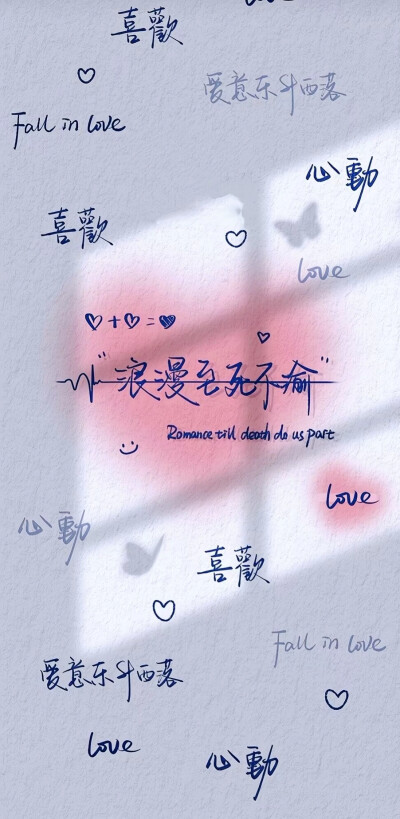 喜歡
爱意东升西落
Fall in love
心動
喜歡
love
♡+♡=♥
"浪漫至死不渝"
Romance till death do us part
love
心動
喜歡
Fall in love
爱意东升西落
love
心動